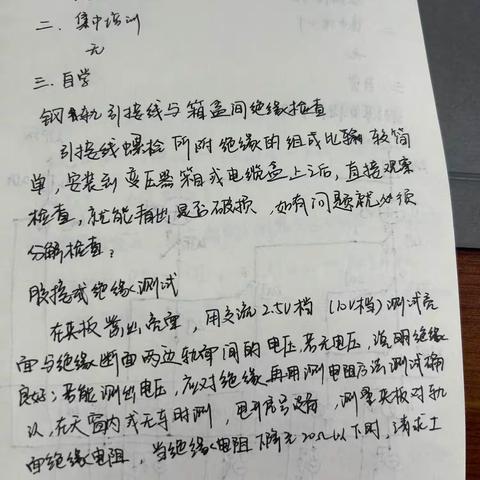 二、集中培训
无
三、自学
钢轨引接线与箱盒间绝缘检查
引接线螺栓所附绝缘的组成比较简
单，安装到变压器箱或电缆盒上之后，直接观察
检查，就能看出是否破损，如有问题就必须
分解检查；
胶接式绝缘测试
在夹板露出亮面，用交流2.5V档（10V档）测试亮
面与绝缘断面两边轨面间的电压，若无电压，说明绝缘
良好；若能测出电压，应对绝缘再用测电阻方法测试确
认，在天窗内或无车时测，电开信号设备，测量夹板对轨
面绝缘电阻，当绝缘电阻下降至20Ω以下时，请求工